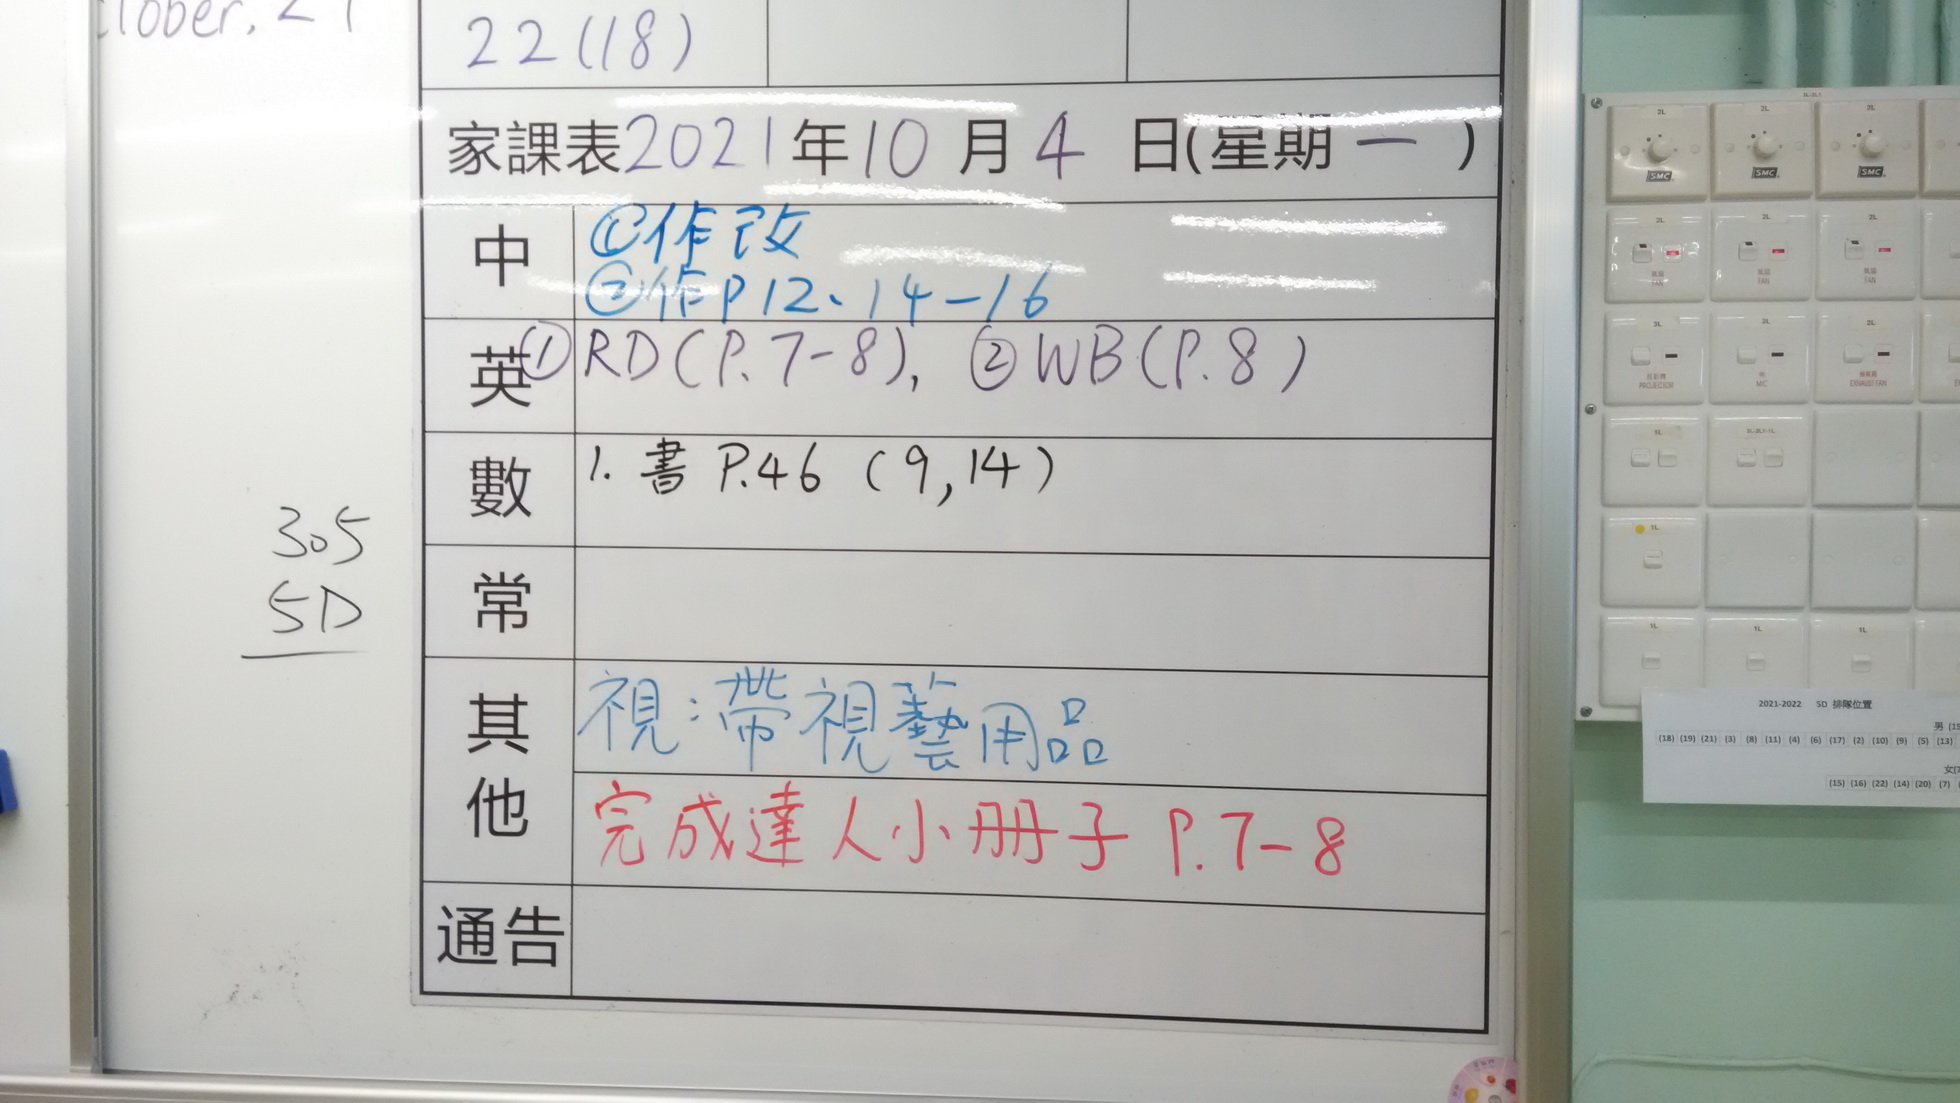 22(18)
家課表2021年10月4日(星期一)
中
①作改
②作P12、14-16
英
①RD(P.7-8), ②WB(P.8)
數
1. 書 P.46 (9,14)
常
其他
視:帶視藝用品
完成達人小冊子 P.7-8
通告
305
5D
2L 2L 2L
SMC SMC SMC
2L 2L 2L
風扇 風扇 風扇
FAN FAN FAN
2L 2L 2L
PROJECTOR MIC EXHAUST FAN
1L
1L
1L 1L 1L
2021-2022 5D 排隊位置
男
(18) (19) (21) (3) (8) (11) (4) (6) (17) (2) (10) (9) (5) (13)
女
(15) (16) (22) (14) (20) (7)